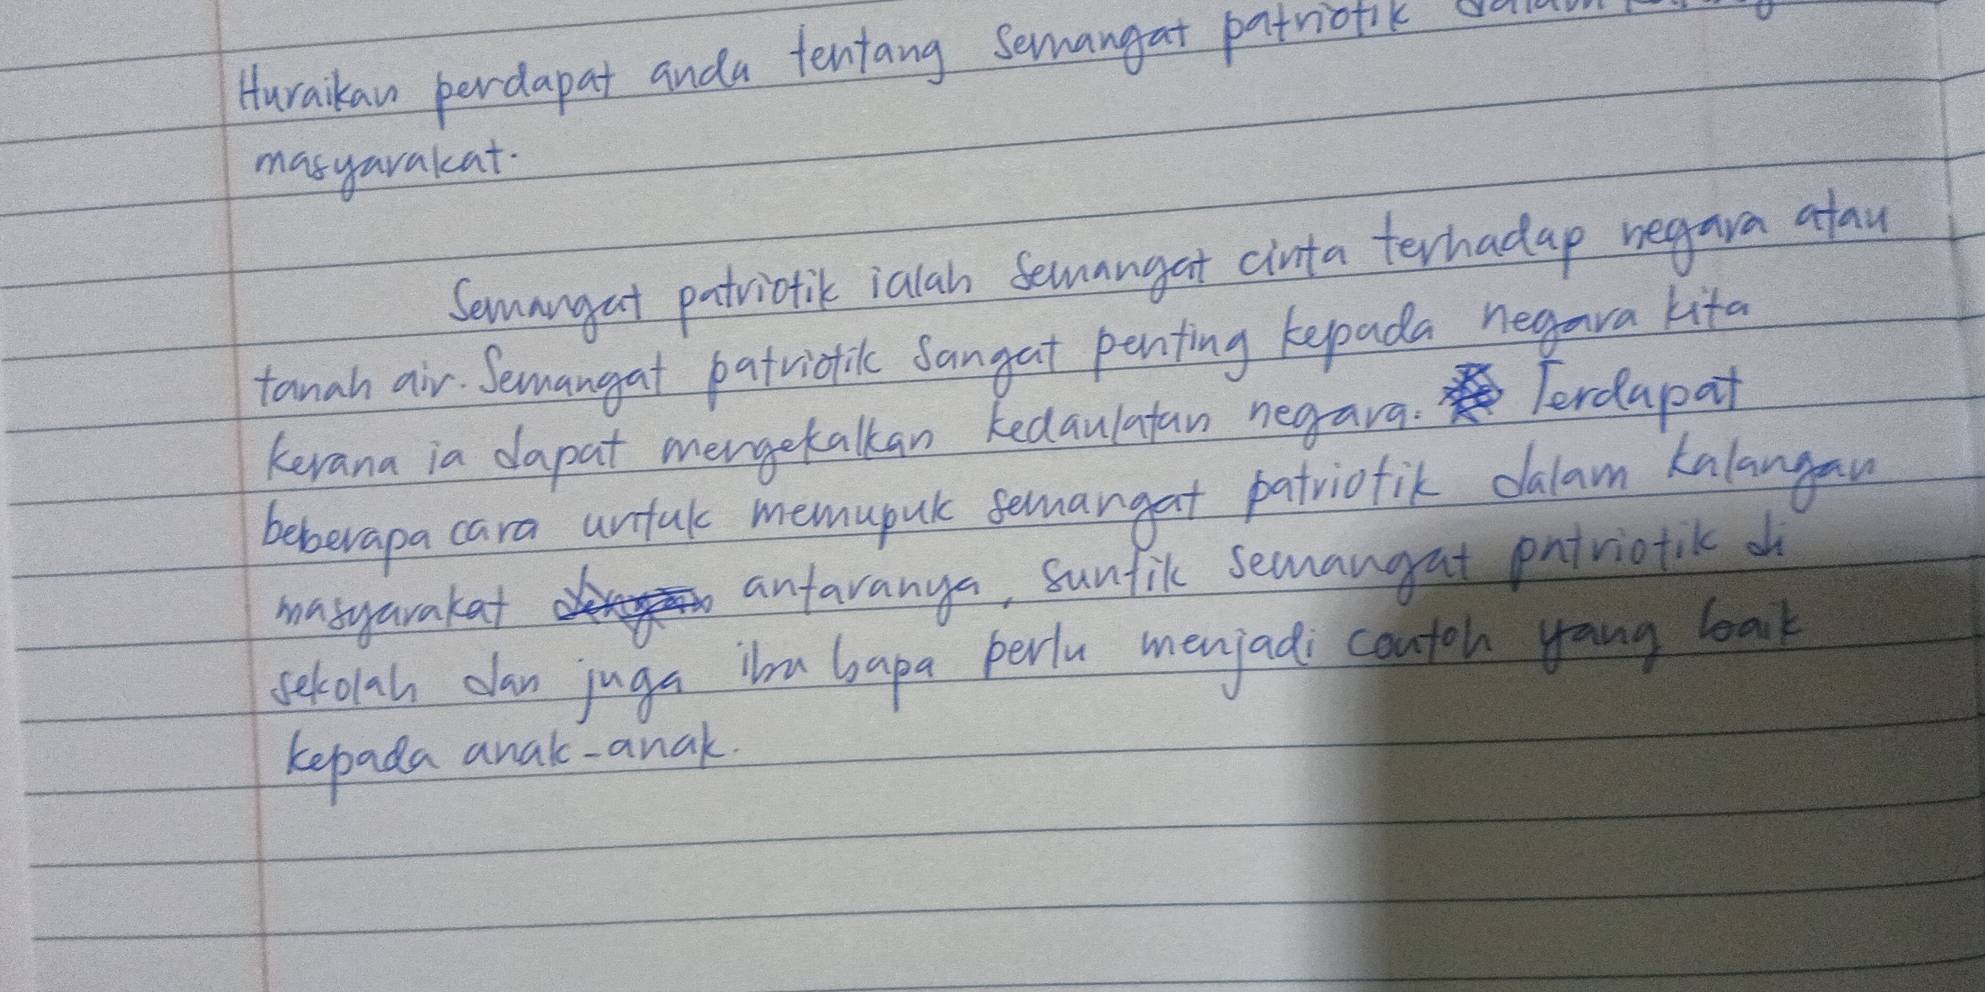 Huraikan pendapat anda tentang semangat patriotik dalam
masyarakat.
Semangat patriotik ialah semangat cinta terhadap negara atau
tanah air. Semangat patriotik sangat penting kepada negara kita
kerana ia dapat mengekalkan kedaulatan negara. Terdapat
beberapa cara untuk memupuk semangat patriotik dalam kalangan
masyarakat antaranya, suntik semangat patriotik di
sekolah dan juga ibu bapa perlu menjadi contoh yang baik
kepada anak-anak.